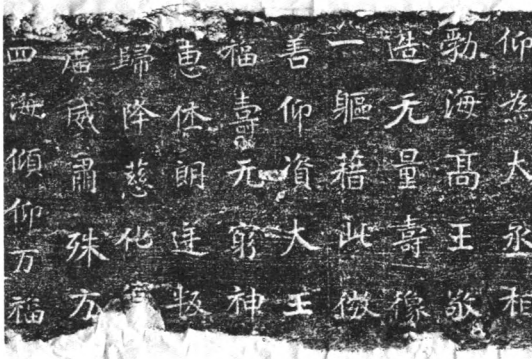 仰為大丞相
勃海高王敬
造无量壽像
一軀藉此微
善仰資大王
福壽无窮神
恵休朗逆叛
歸降慈化
威肅殊方
四海傾仰万福